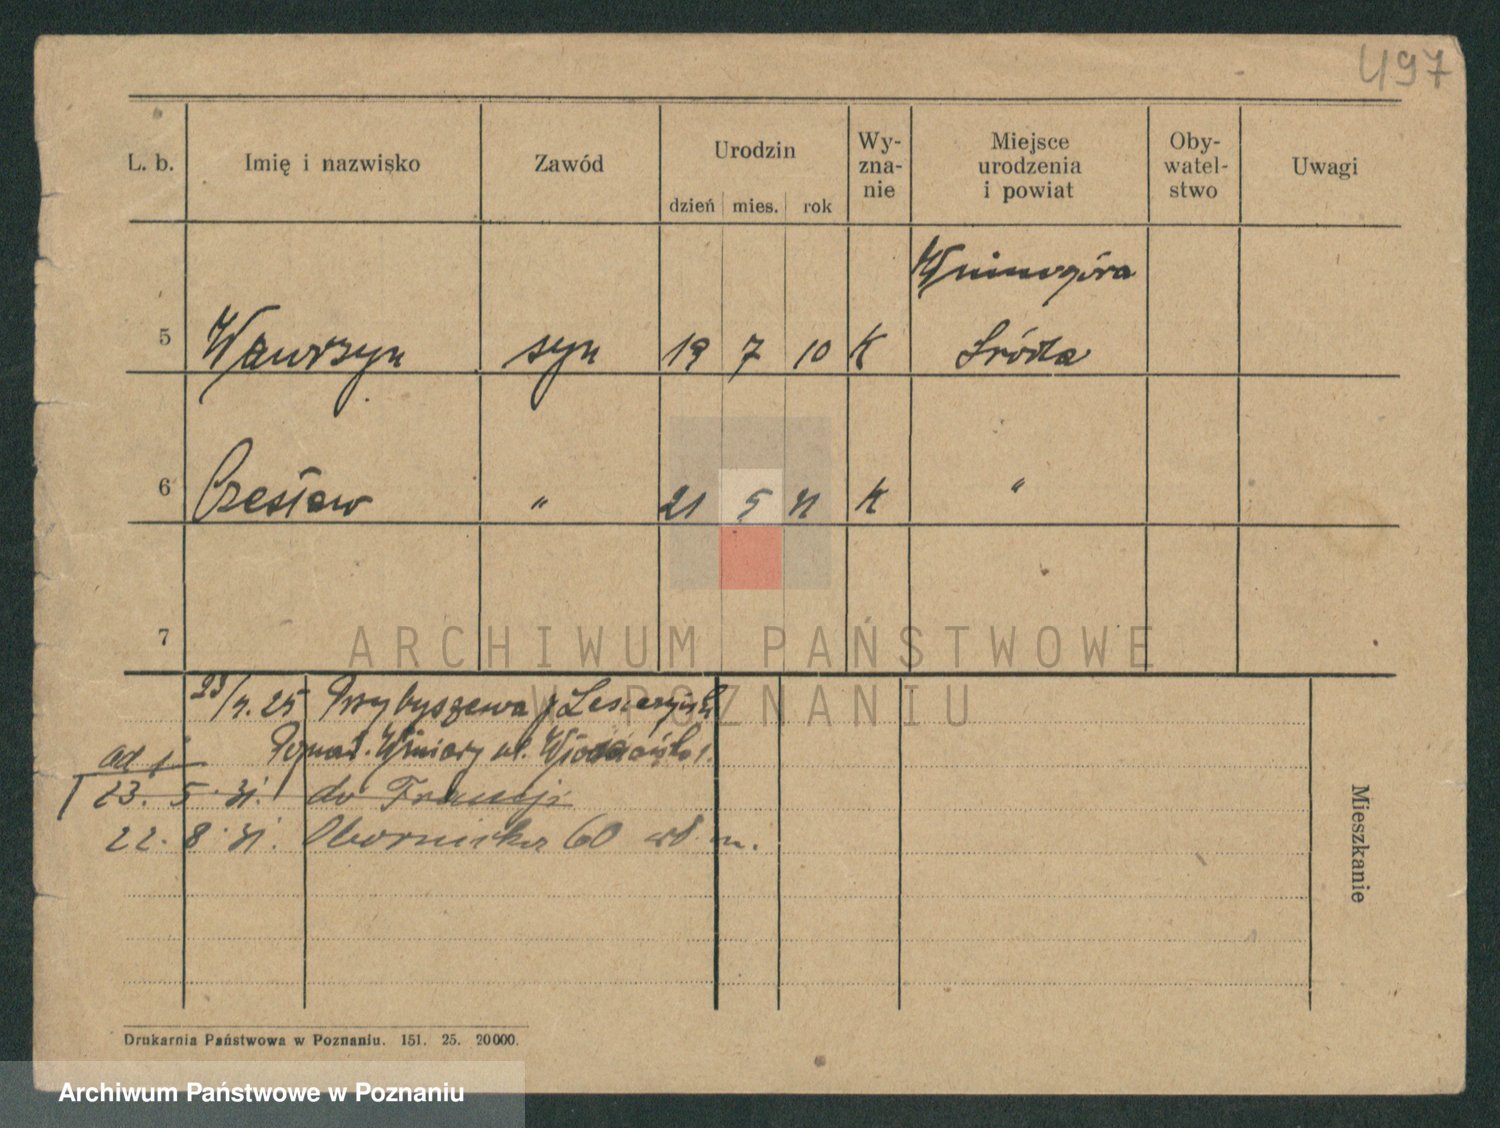 497
L. b. Imię i nazwisko Zawód Urodzin dzień mies. rok Wy-zna-nie Miejsce urodzenia i powiat Oby-watel-stwo Uwagi
Winnogóra
5 Wawrzyn syn 19 7 10 K Środa
6 Czesław " 21 5 K "
7
ARCHIWUM PAŃSTWOWE
W POZNANIU
25 Przybyszewa
ad 1 Poznań. Winiary ul.
23. 5. 31. do Francji
22. 8. 31. Obornicka 60 m.
Mieszkanie
Drukarnia Państwowa w Poznaniu. 151. 25. 20000.
Archiwum Państwowe w Poznaniu